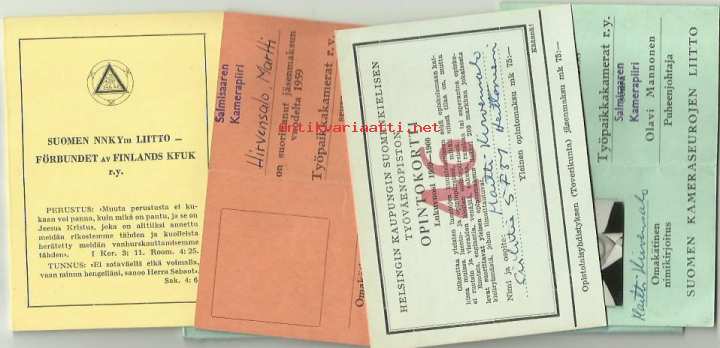 SUOMEN NNKYm LIITTO –
FÖRBUNDET AV FINLANDS KFUK
r.y.
PERUSTUS: »Muuta perustusta ei ku-
kaan voi panna, kuin mikä on pantu, ja se on
Jeesus Kristus, joka on alttiiksi annettu
meidän rikostemme tähden ja kuolleista
herätetty meidän vanhurskauttamisemme
tähden». I Kor. 3; 11. Room. 4: 25.
TUNNUS: »Ei sotaväellä eikä voimalla,
vaan minun hengelläni, sanoo Herra Sebaot».
Sak. 4: 6
Salmisaaren
Kamerapiiri
Hirvensalo Martti
on suorittanut jäsenmaksun
vuodelta 1959
Työpaikkakamerat r.y.
antikvariaatti.net
HELSINGIN KAUPUNGIN SUOMENKIELISEN
TYÖVÄENOPISTON
OPINTOKORTTI
Lukuvuosi 1959–1960
46
Nimi ja osoite:
Martti Hirvensalo
Yleinen opintomaksu mk 75:—
Opistolaisyhdistyksen (Toverikunta) jäsenmaksu mk 75:—
Käännä!
Työpaikkakamerat r.y.
Salmisaaren
Kamerapiiri
Olavi Mannonen
Puheenjohtaja
Martti Hirvensalo
Omakätinen
nimikirjoitus
SUOMEN KAMERASEUROJEN LIITTO